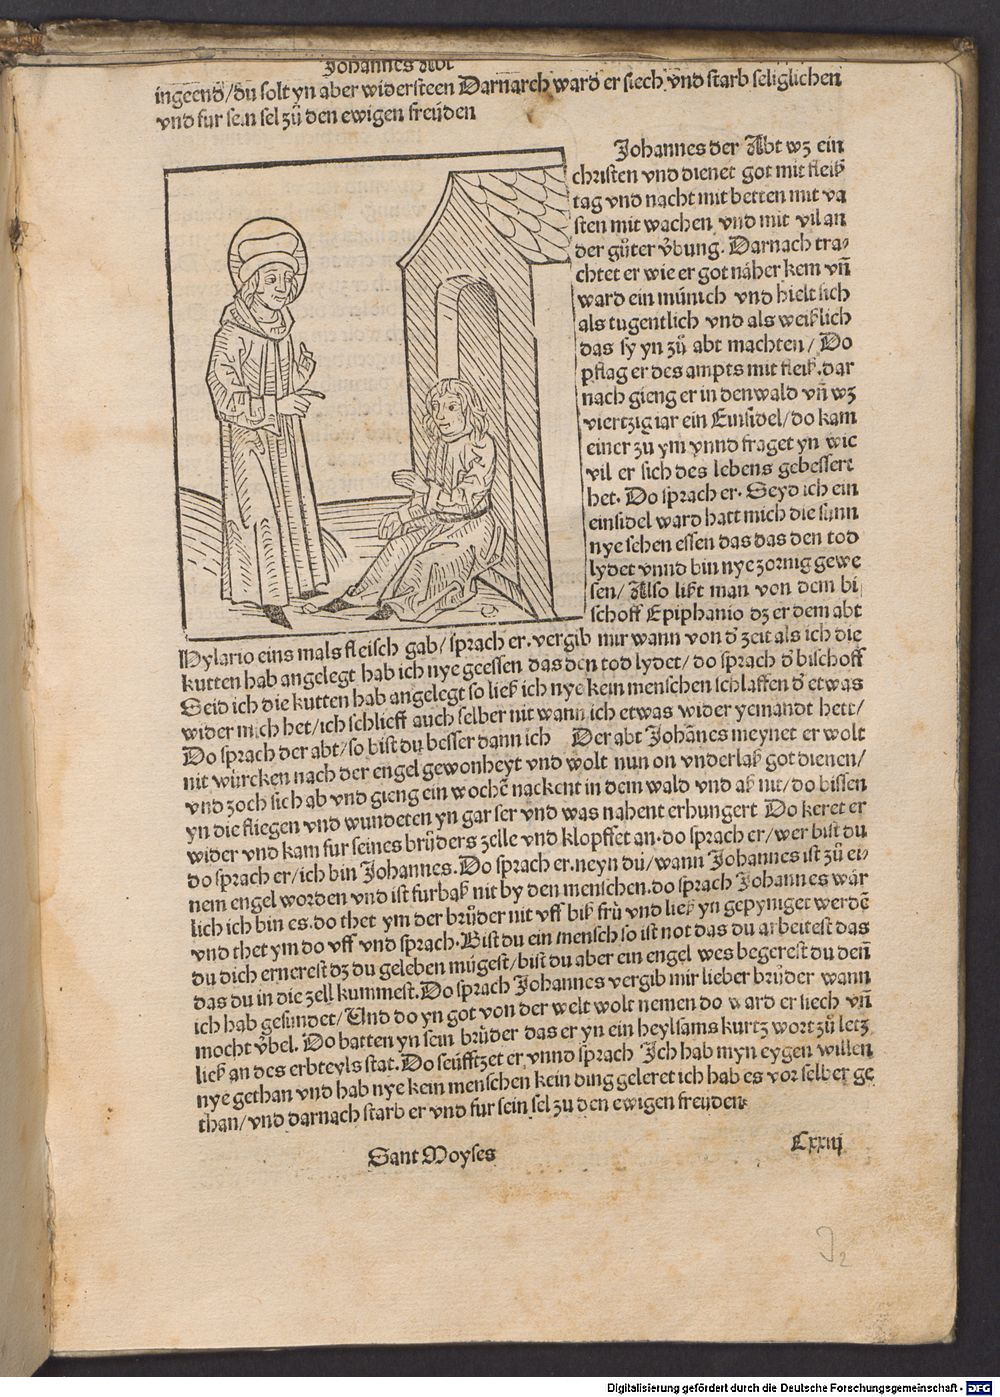 Johannes Abt
ingeend/du solt yn aber widersteen Darnarch ward er siech vnd starb seliglichen
vnd fur sein sel zů den ewigen freüden
Johannes der Abt wz ein
christen vnd dienet got mit fleiß
tag vnd nacht mit betten mit va
sten mit wachen vnd mit vil an
der gůter v̈bung. Darnach tra⸗
chtet er wie er got näher kem vñ
ward ein münich vnd hielt sich
als tugentlich vnd als weißlich
das sy yn zů abt machten/ Do
pflag er des ampts mit fleiß. dar
nach gieng er in den wald vñ wz
viertzig iar ein Einsidel/do kam
einer zu ym vnnd fraget yn wie
vil er sich des lebens gebessert
het. Do sprach er. Seyd ich ein
einsidel ward hatt mich die sunn
nye sehen essen das das den tod
lydet vnnd bin nye zornig gewe
sen/ Also lißt man von dem bi
schoff Epiphanio dz er dem abt
Hylario eins mals fleisch gab/ sprach er. vergib mir wann von d̛ zeit als ich die
kutten hab angelegt hab ich nye geessen das den tod lydet/ do sprach d̛ bischoff
Seid ich die kutten hab angelegt so ließ ich nye kein menschen schlaffen d̛ etwas
wider mich het/ich schlieff auch selber nit wann ich etwas wider yemandt hett/
Do sprach der abt/so bist du besser dann ich Der abt Johãnes meynet er wolt
nit würcken nach der engel gewonheyt vnd wolt nun on vnderlaß got dienen/
vnd zoch sich ab vnd gieng ein wochẽ nackent in dem wald vnd aß nit/do bissen
yn die fliegen vnd wundeten yn gar ser vnd was nahent erhungert Do keret er
wider vnd kam fur seines brůders zelle vnd klopffet an. do sprach er/wer bist du
do sprach er/ich bin Johannes. Do sprach er. neyn du/wann Johannes ist zů ei⸗
nem engel worden vnd ist furbaß nit by den menschen. do sprach Johannes wär
lich ich bin es. do thet ym der brůder nit vff biß frů vnd ließ yn gepyniget werdẽ
vnd thet ym do vff vnd sprach. Bist du ein mensch so ist not das du arbeitest das
du dich ernerest dz du geleben mügest/bist du aber ein engel wes begerest du deñ
das du in die zell kummest. Do sprach Johannes vergib mir lieber brůder wann
ich hab gesundet/ Und do yn got von der welt wolt nemen do ward er siech vñ
mocht v̈bel. Do batten yn sein brůder das er yn ein heylsams kurtz wort zů letz
ließ an des erbteyls stat. Do seüfftzet er vnnd sprach Ich hab myn eygen willen
nye gethan vnd hab nye kein menschen kein ding geleret ich hab es vor selber ge
than/vnd darnach starb er vnd fur sein sel zu den ewigen freüden.
Sant Moyses
Cxxiij
J2
Digitalisierung gefördert durch die Deutsche Forschungsgemeinschaft - DFG